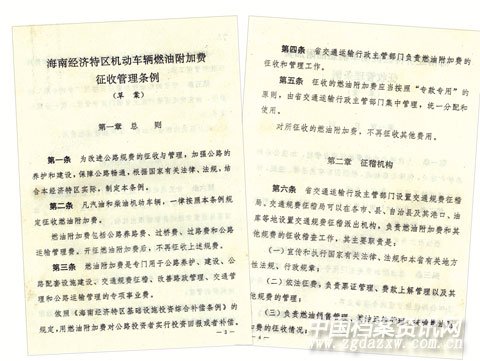 海南经济特区机动车辆燃油附加费
征收管理条例
（草案）
第一章 总则
第一条 为改进公路规费的征收与管理，加强公路的
养护和建设，保障公路畅通，根据国家有关法律、法规，结
合本经济特区实际，制定本条例。
第二条 凡汽油和柴油机动车辆，一律按照本条例规
定征收燃油附加费。
燃油附加费包括公路养路费、过桥费、过路费和公路
运输管理费。开征燃油附加费后，不再征收上述规费。
第三条 燃油附加费是专门用于公路养护、建设、公
路配套设施建设、交通规费征稽、改善路政管理、交通管
理和公路运输管理的专项事业费。
依照《海南经济特区基础设施投资综合补偿条例》的
规定，用燃油附加费对公路投资者实行投资回报或者补偿。
— 3 —
第四条 省交通运输行政主管部门负责燃油附加费的
征收和管理工作。
第五条 征收的燃油附加费应当按照“专款专用”的
原则，由省交通运输行政主管部门集中管理，统一分配和
使用。
对所征收的燃油附加费，不再征收其他费用。
第二章 征稽机构
第六条 省交通运输行政主管部门设置交通规费征稽
局。交通规费征稽局可以在各市、县、自治县及其港口、油
库等地设置交通规费征稽派出机构，负责燃油附加费和其
他规费的征收稽查工作，其主要职责是：
（一）宣传和执行国家有关法律、法规和本省有关地方
性法规、行政规章；
（二）依法征费，负责票证管理、费款上解管理以及其
他规费的管理；
（三）负责燃油销售管理，
征费的征收情况；
— 4 —
中国档案资讯网
www.zgdazxw.com.cn